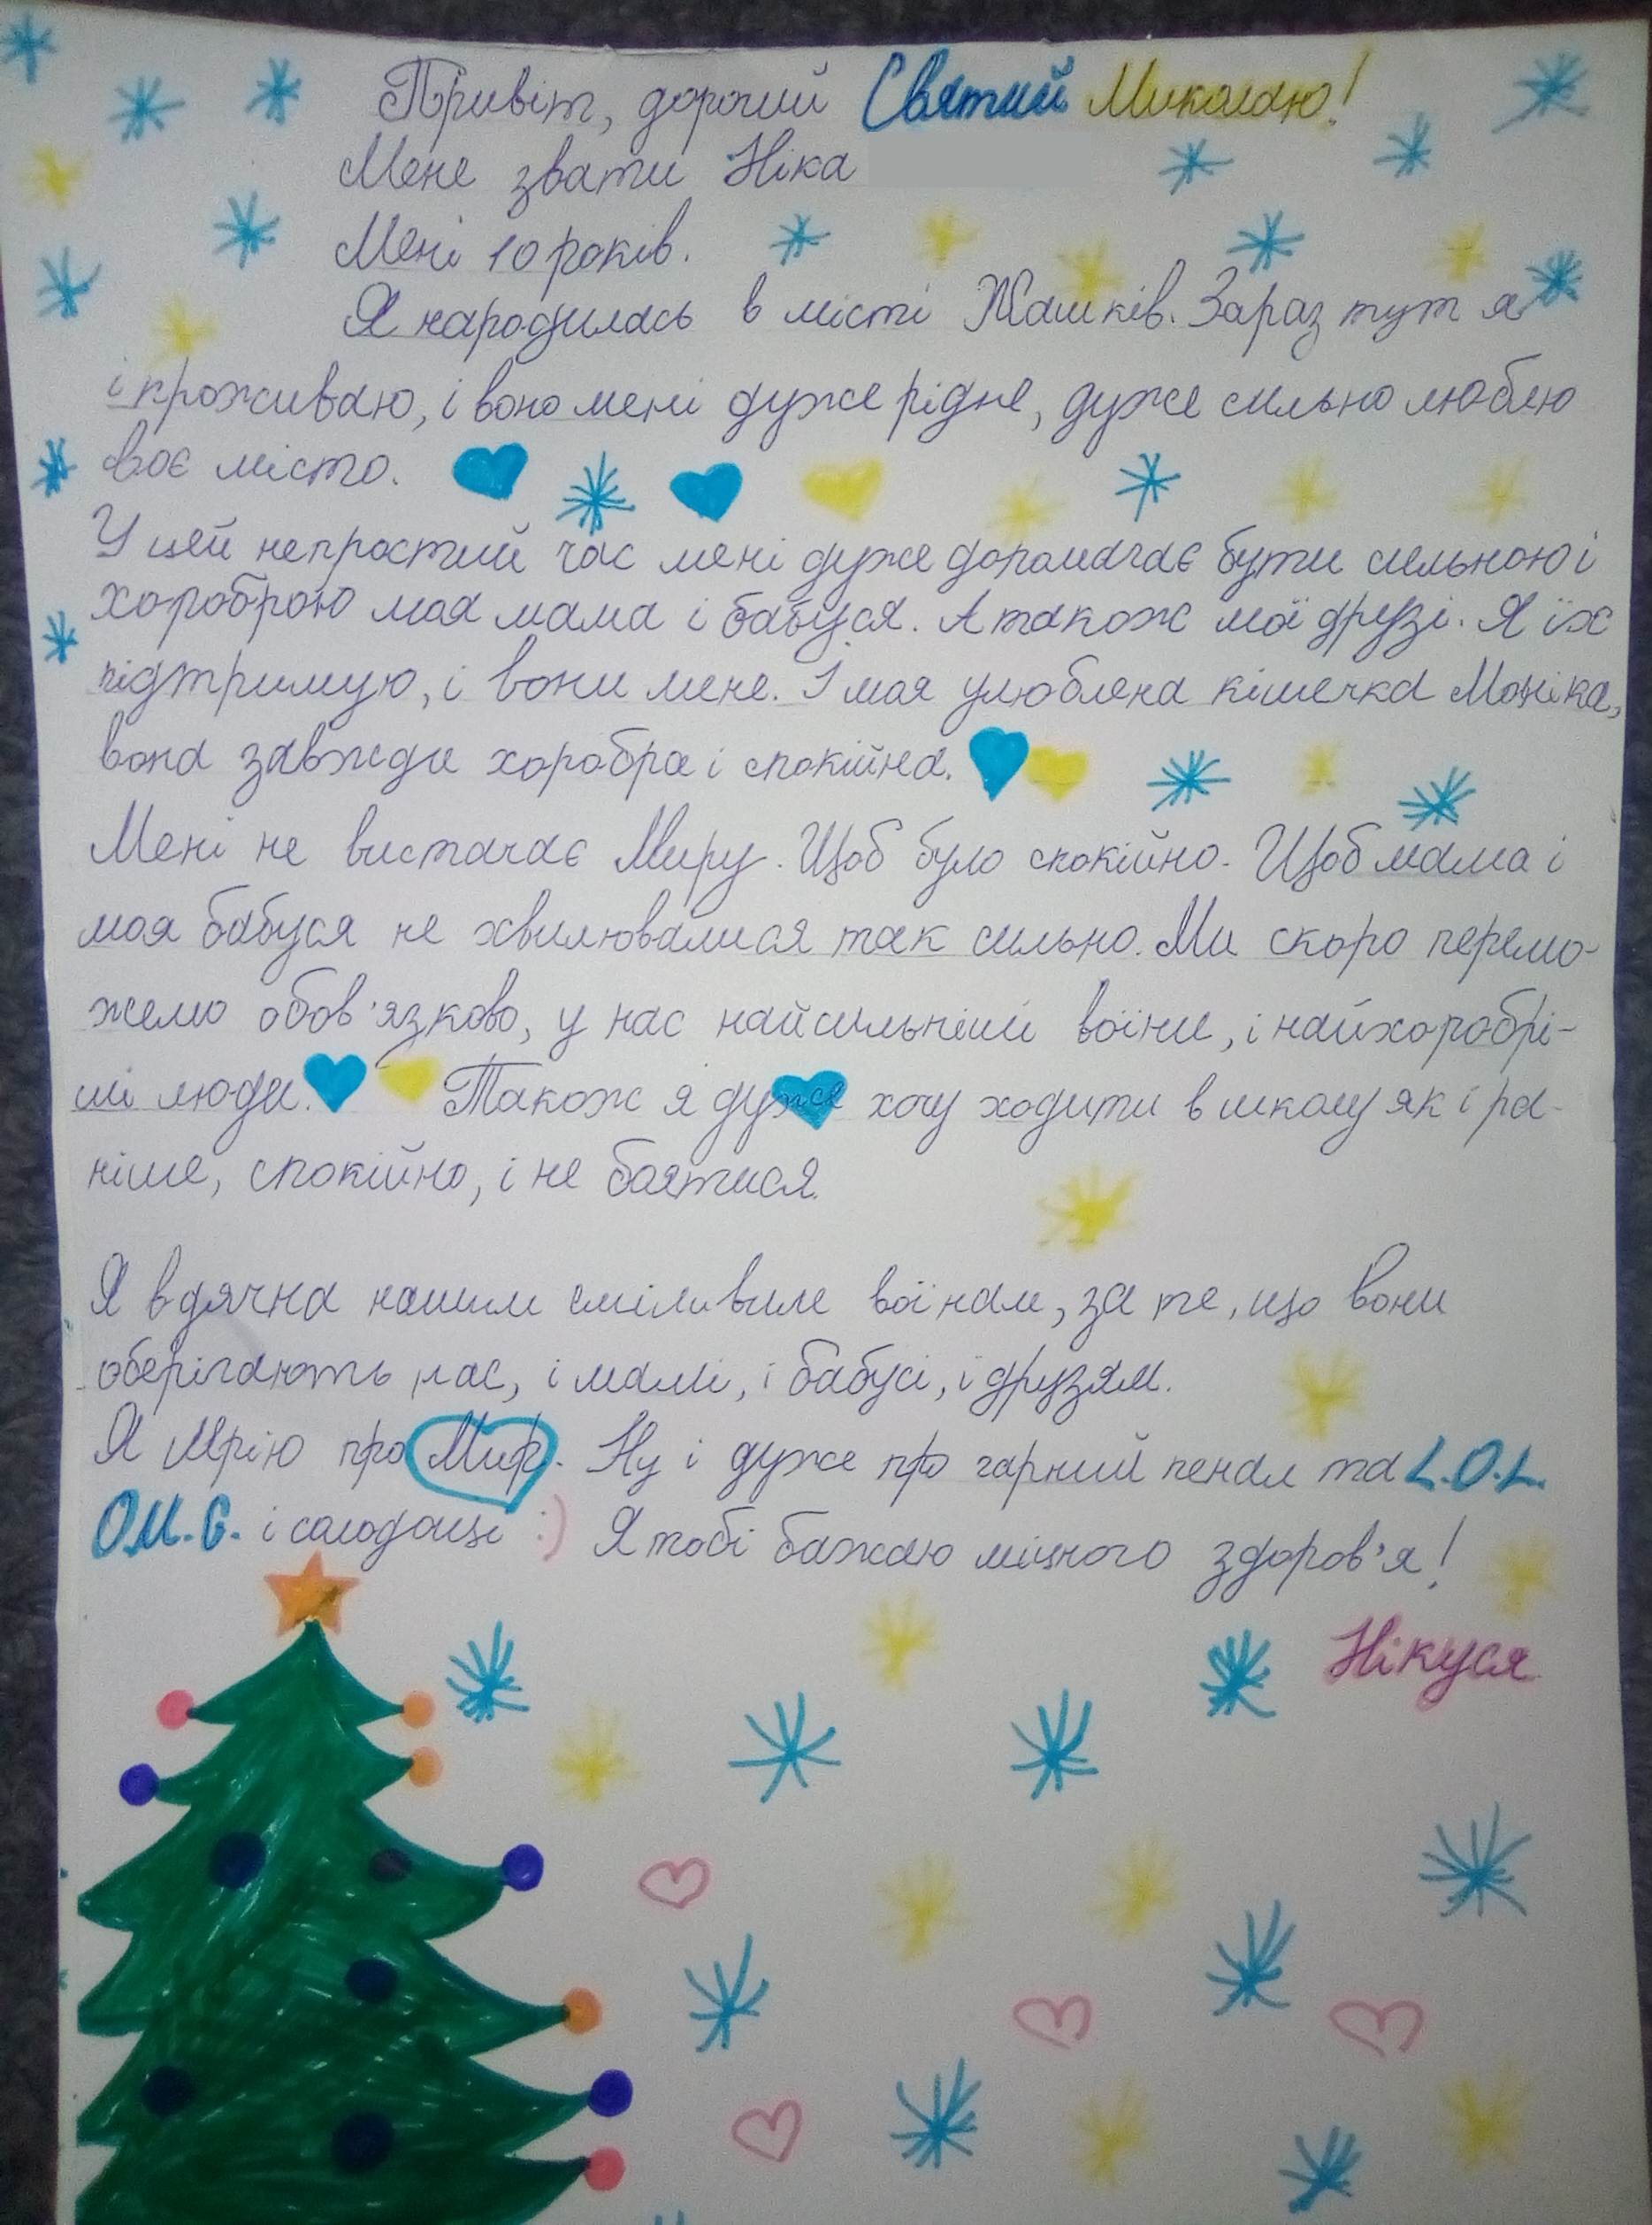 Привіт, дорогий Святий Миколаю!
Мене звати Ніка
Мені 10 років.
Я народилась в місті Жашків. Зараз тут я
і проживаю, і воно мені дуже рідне, дуже сильно люблю
своє місто.
У цей непростий час мені дуже допомагає бути сильною і
хороброю моя мама і бабуся. А також мої друзі. Я їх
підтримую, і вони мене. І моя улюблена кішечка Моніка,
вона завжди хоробра і спокійна.
Мені не вистачає Миру. Щоб було спокійно. Щоб мама і
моя бабуся не хвилювалися так сильно. Ми скоро перемо-
жемо обов'язково, у нас найсильніші воїни, і найхоробрі-
ші люди. Також я дуже хочу ходити в школу як і ра-
ніше, спокійно, і не боятися.
Я вдячна нашим сміливим воїнам, за те, що вони
оберігають нас, і мамі, і бабусі, і друзям.
Я мрію про Мир. Ну і дуже про гарний пенал та L.O.L.
O.M.G. і солодощі :) Я тобі бажаю міцного здоров'я!
Нікуся